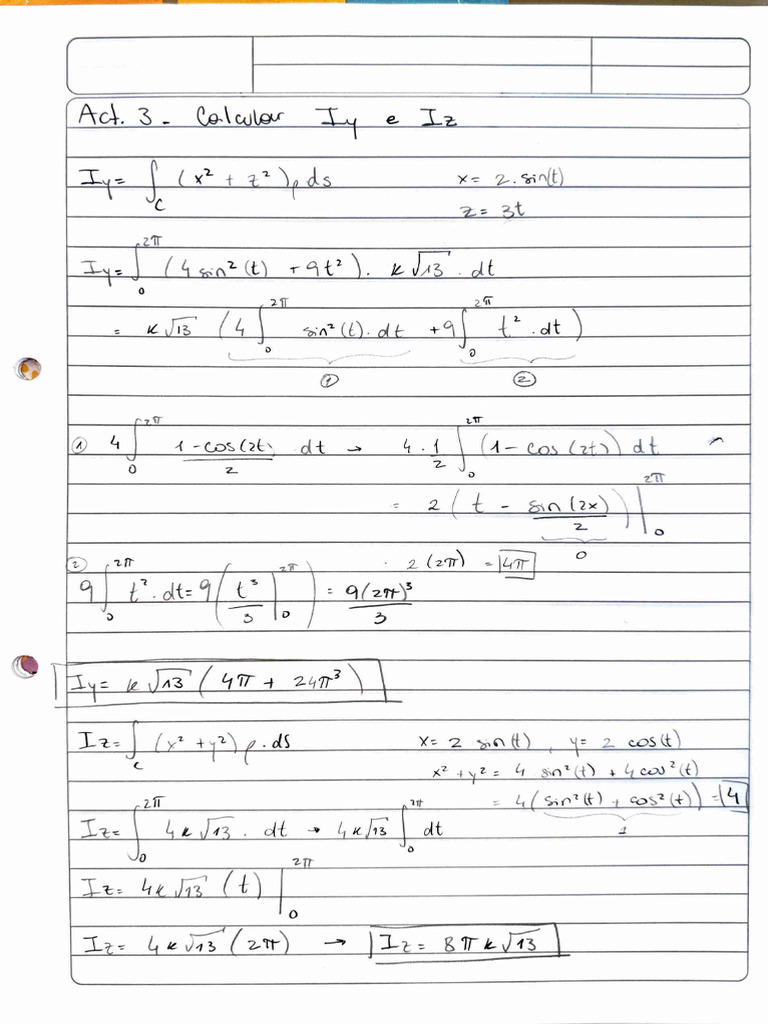 Act. 3 - Calcular Iy e Iz
Iy = ∫_C (x² + z²) ρ ds x = 2.sin(t)
z = 3t
Iy = ∫_0^{2π} (4 sin²(t) + 9t²). k√13 . dt
= k√13 (4 ∫_0^{2π} sin²(t).dt + 9 ∫_0^{2π} t².dt)
① ②
① 4 ∫_0^{2π} (1-cos(2t))/2 dt → 4.1/2 ∫_0^{2π} (1 - cos(2t)) dt
= 2 (t - sin(2x)/2) |_0^{2π}
0
. 2(2π) = 4π
② 9 ∫_0^{2π} t².dt = 9 (t³/3 |_0^{2π}) = 9(2π)³/3
Iy = k√13 (4π + 24π³)
Iz = ∫_C (x² + y²) ρ.ds x = 2 sin(t), y = 2 cos(t)
x² + y² = 4 sin²(t) + 4cos²(t)
= 4(sin²(t) + cos²(t)) = 4
1
Iz = ∫_0^{2π} 4k√13 . dt → 4k√13 ∫_0^{2π} dt
Iz = 4k√13 (t) |_0^{2π}
Iz = 4k√13 (2π) → Iz = 8πk√13